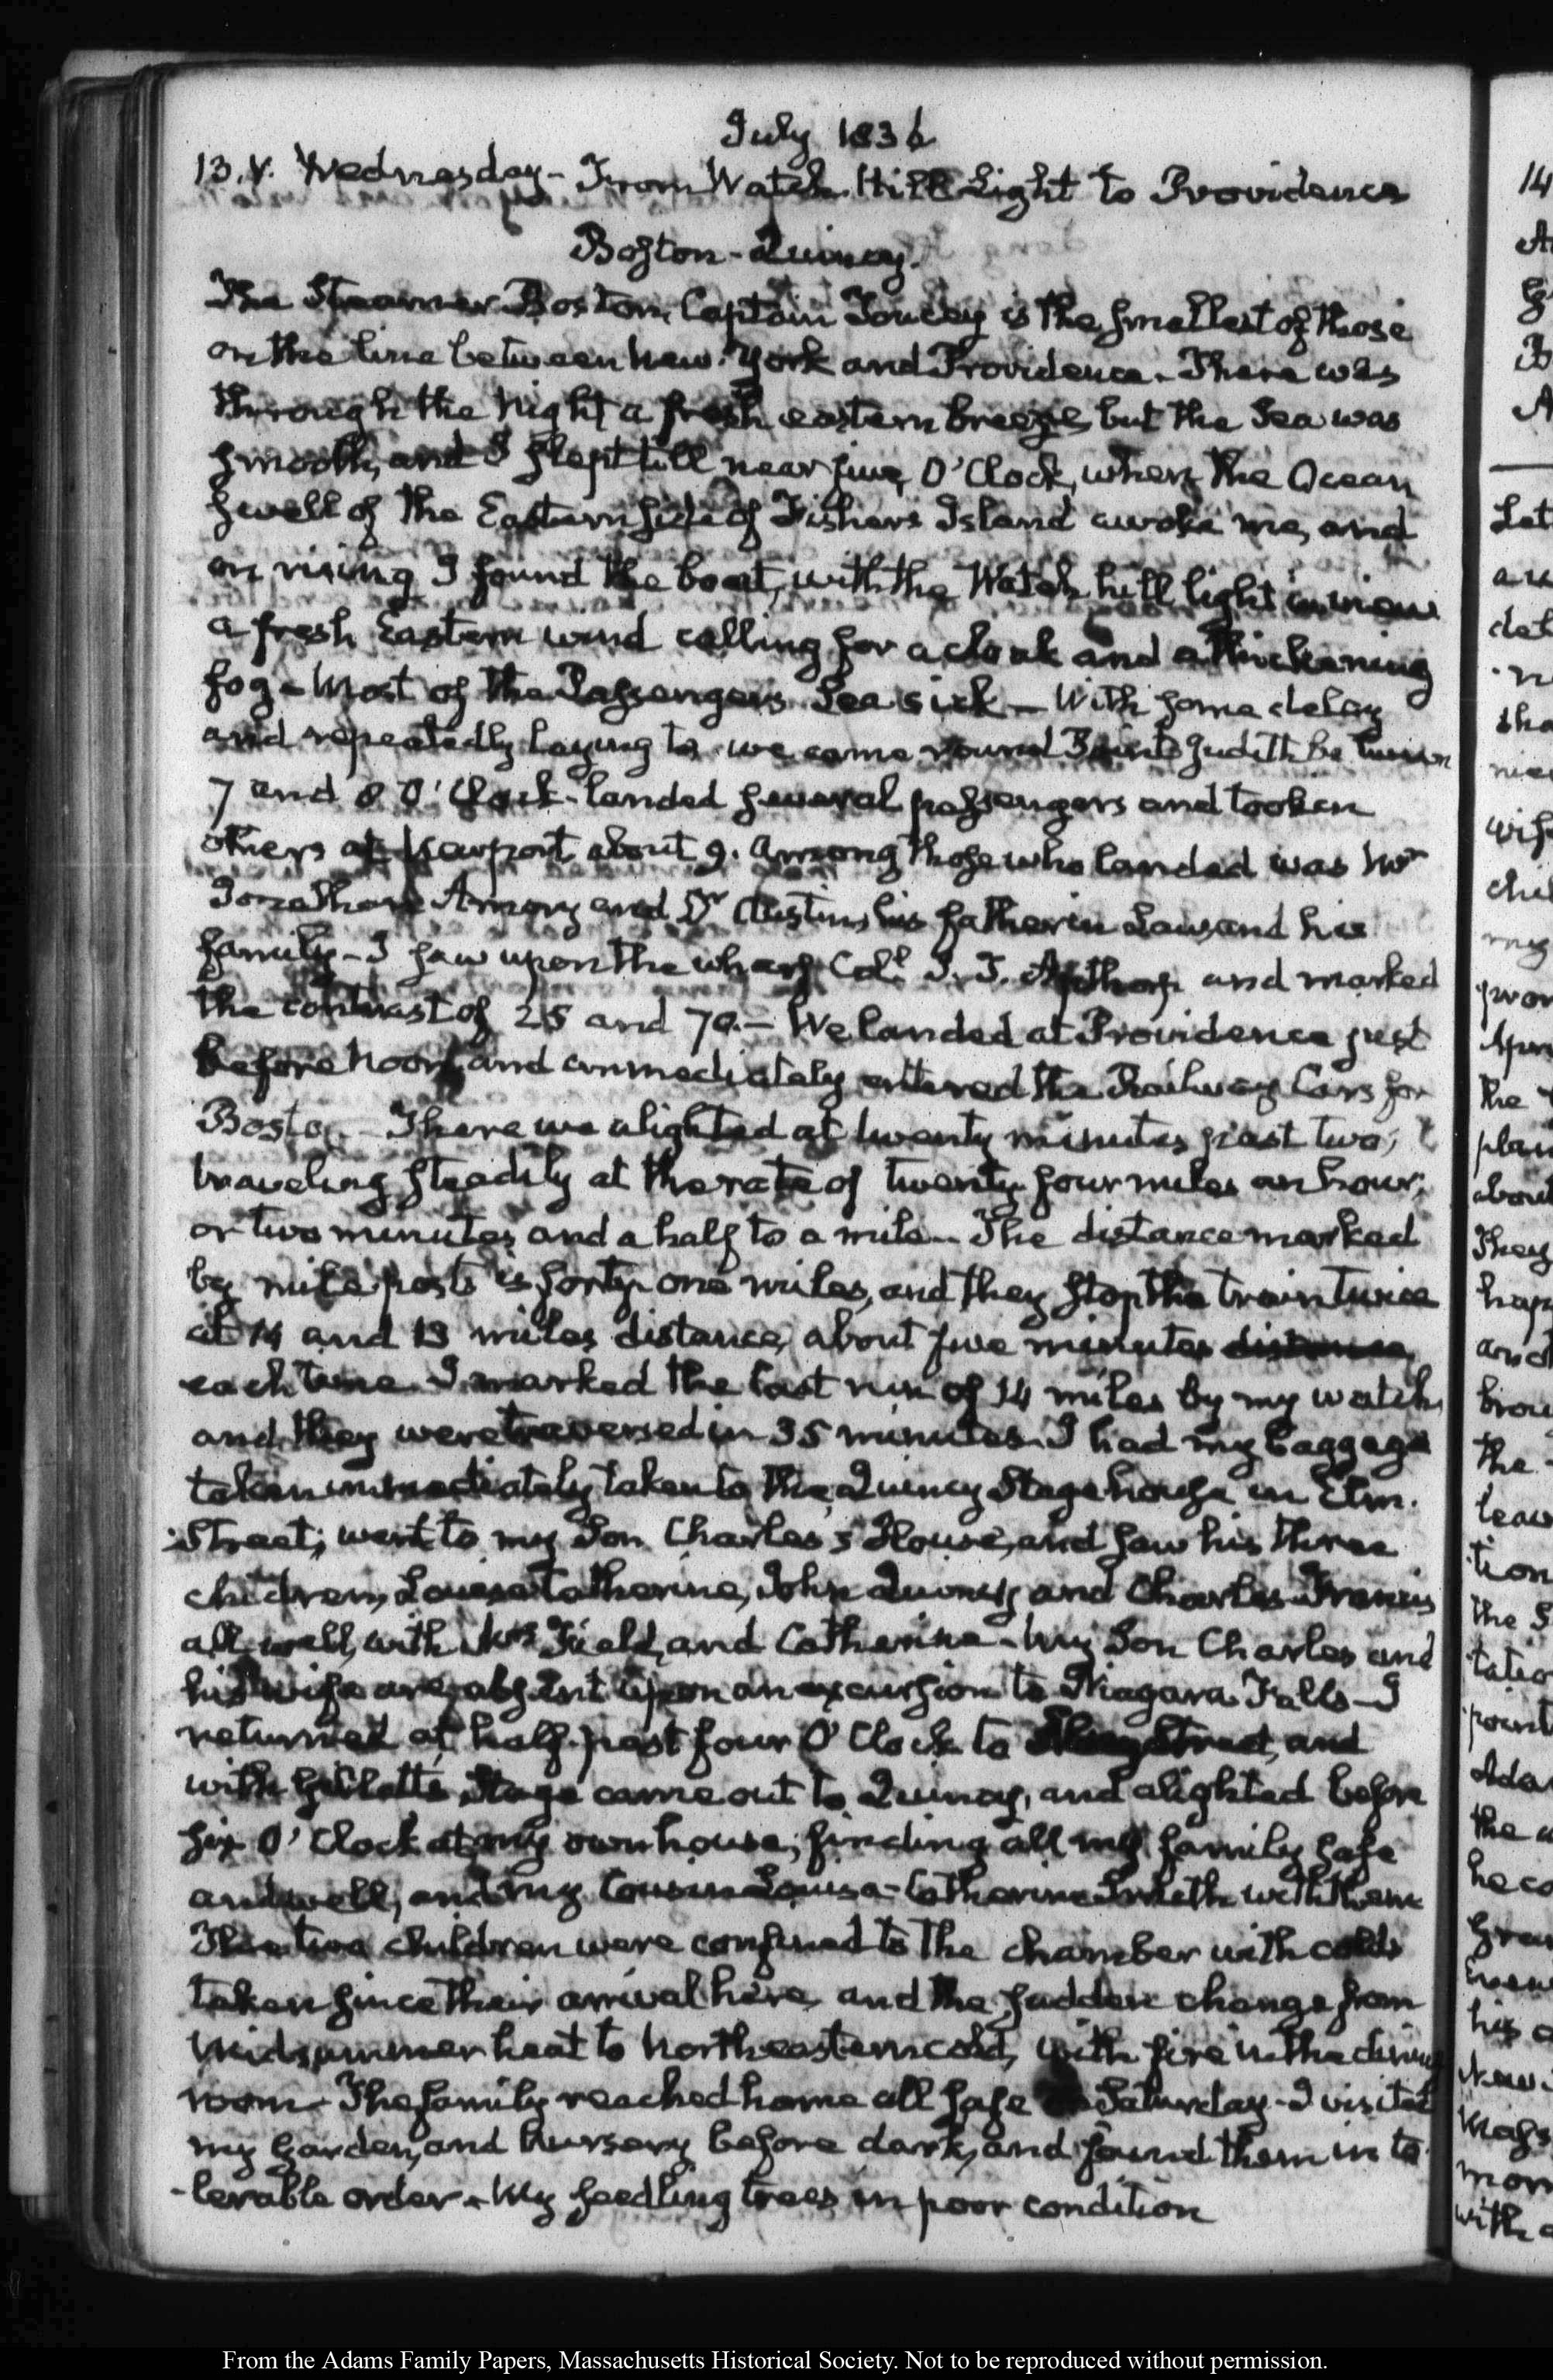 July 1836
13. V. Wednesday - From Watch Hill Light to Providence
Boston - Quincy.
The Steamer Boston, Captain Toucey is the smallest of those
on the line between New-York and Providence. There was
through the Night a fresh eastern breeze, but the Sea was
smooth, and I slept till near five O'Clock, when the Ocean
swell of the Eastern side of Fishers Island awoke me, and
on rising I found the boat, with the Watch hill light in view
a fresh Eastern wind calling for a cloak and a thickening
fog - Most of the Passengers Sea sick - With some delay
and repeatedly laying to, we came round Point Judith between
7 and 8 O'Clock - landed several passengers and took in
others at Newport about 9. Among those who landed was Mr
Jonathan Amory and Dr Austin, his father in Law, and his
family - I saw upon the wharf Coll. J. T. Apthorp and marked
the contrast of 25 and 70. - We landed at Providence just
before Noon, and immediately entered the Railway Cars for
Boston - There we alighted at twenty minutes past two,
traveling steadily at the rate of twenty four miles an hour;
or two minutes and a half to a mile - The distance marked
by mile posts is forty-one miles, and they stop the train twice
at 14 and 13 miles distance, about five minutes distance
each time. I marked the last run of 14 miles by my watch,
and they were traversed in 35 minutes. I had my baggage
taken immediately taken to the Quincy Stage house in Elm.
Street; went to my Son Charles's House, and saw his three
children, Louisa Catherine, John Quincy and Charles Francis
all well, with Mrs Field, and Catherine - My Son Charles and
his wife are absent upon an excursion to Niagara Falls - I
returned at half-past four O'Clock to Elm Street, and
with Gillett's Stage came out to Quincy, and alighted before
six O'Clock at my own house; finding all my family safe
and well, and my Cousin Louisa-Catherine Smith with them
The two children were confined to the chamber with colds
taken since their arrival here, and the sudden change from
Midsummer heat to Northeastern cold, with fire in the dining
room - The family reached home all safe Saturday - I visited
my Garden, and Nursery before dark, and found them in to
-lerable order - My seedling trees in poor condition
14
From the Adams Family Papers, Massachusetts Historical Society. Not to be reproduced without permission.